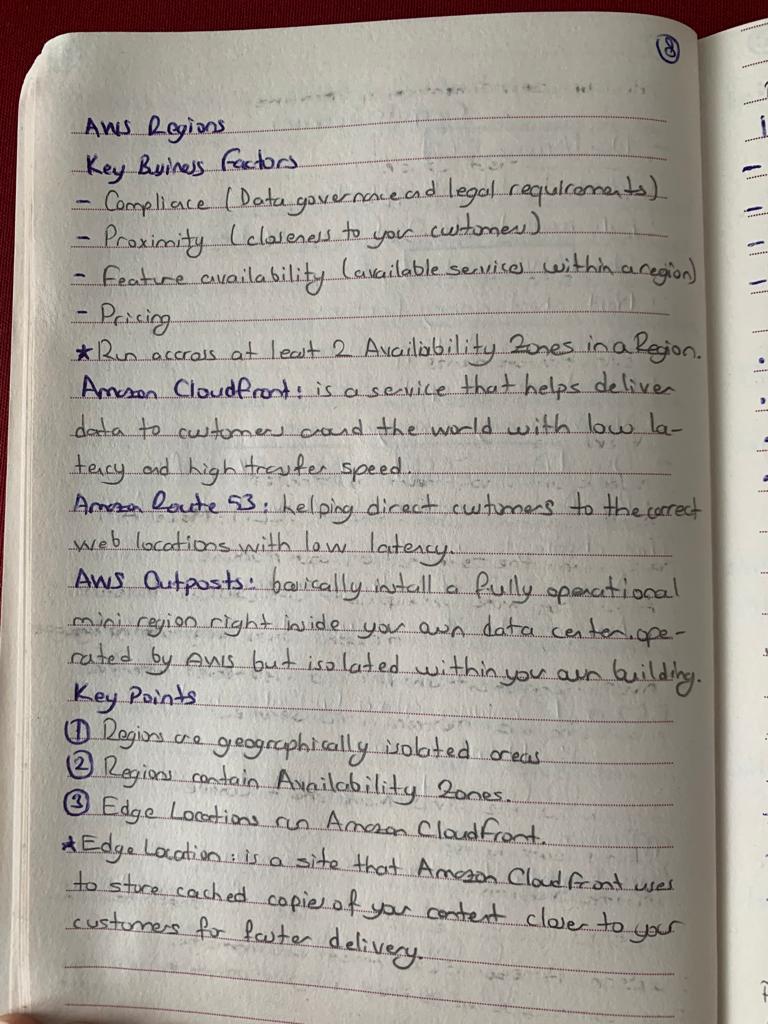 8
AWS Regions
Key Business Factors
- Compliace (Data governance and legal requirements)
- Proximity (closeness to your customers)
- Feature availability (available services within a region)
- Pricing
★Run accross at least 2 Availiability Zones in a Region.
Amazon CloudFront: is a service that helps deliver
data to customers around the world with low la-
tency and high transfer speed.
Amazon Route 53: helping direct customers to the correct
web locations with low latency.
AWS Outposts: basically install a fully operational
mini region right inside your own data center. ope-
rated by AWS but isolated within your own building.
Key Points
① Regions are geographically isolated areas
② Regions contain Availability Zones.
③ Edge Locations run Amazon CloudFront.
★Edge Location: is a site that Amazon CloudFront uses
to store cached copies of your content closer to your
customers for faster delivery.